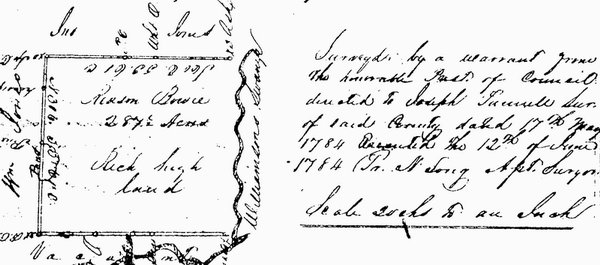 Jno Jones
Reason Bowie
287½ Acres
Rich high
land
Wm Jones
Williamsons Swamp
Vacant
Surveyd: by a warrant from
the honorable Prest. of Council
directed to Joseph Tunnell Sur.
of said County dated 17th May
1784 Executed the 12th of June
1784 Pr. N Long Apt. Suryor
Scale 20 chs to an Inch